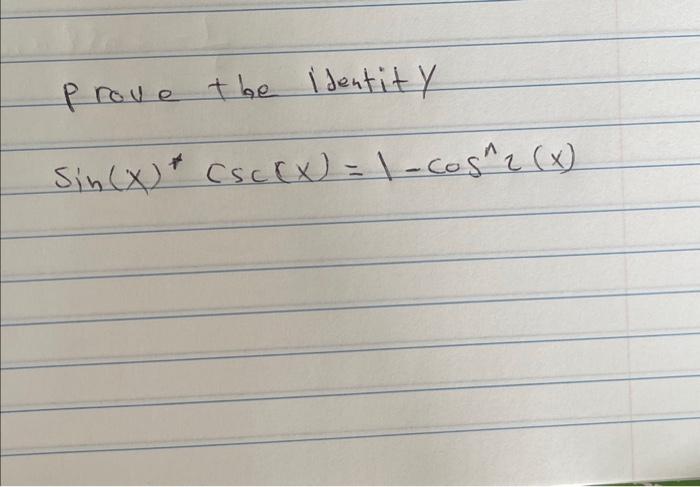 Prove the identity
Sin(x)* Csc(x) = 1 - cos^2(x)